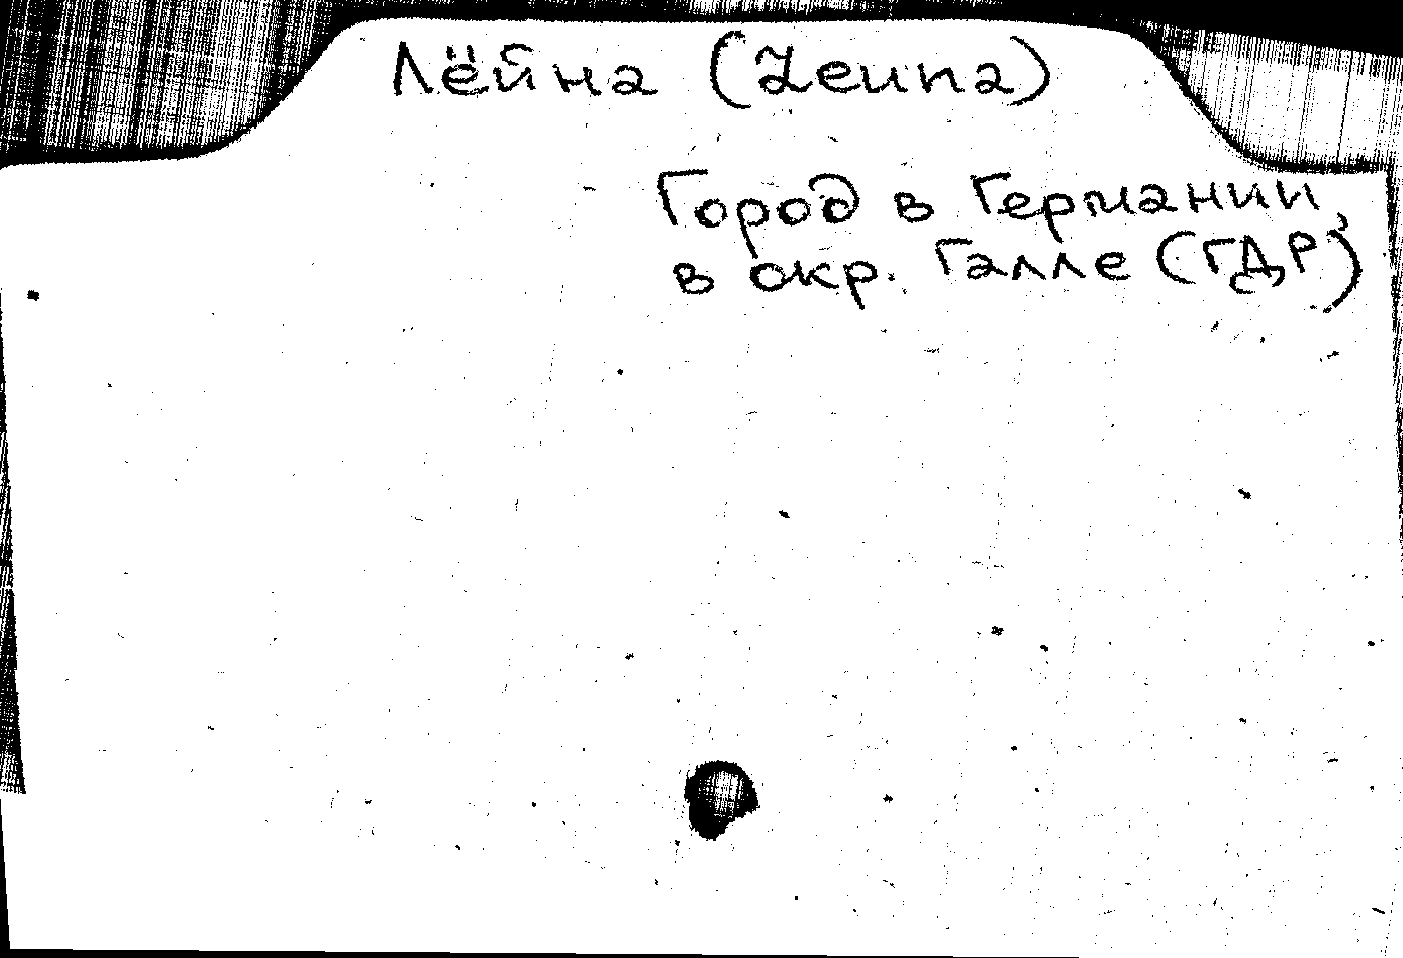 Лёйна (Leuna)
Город в Германии,
в окр. Галле (ГДР)